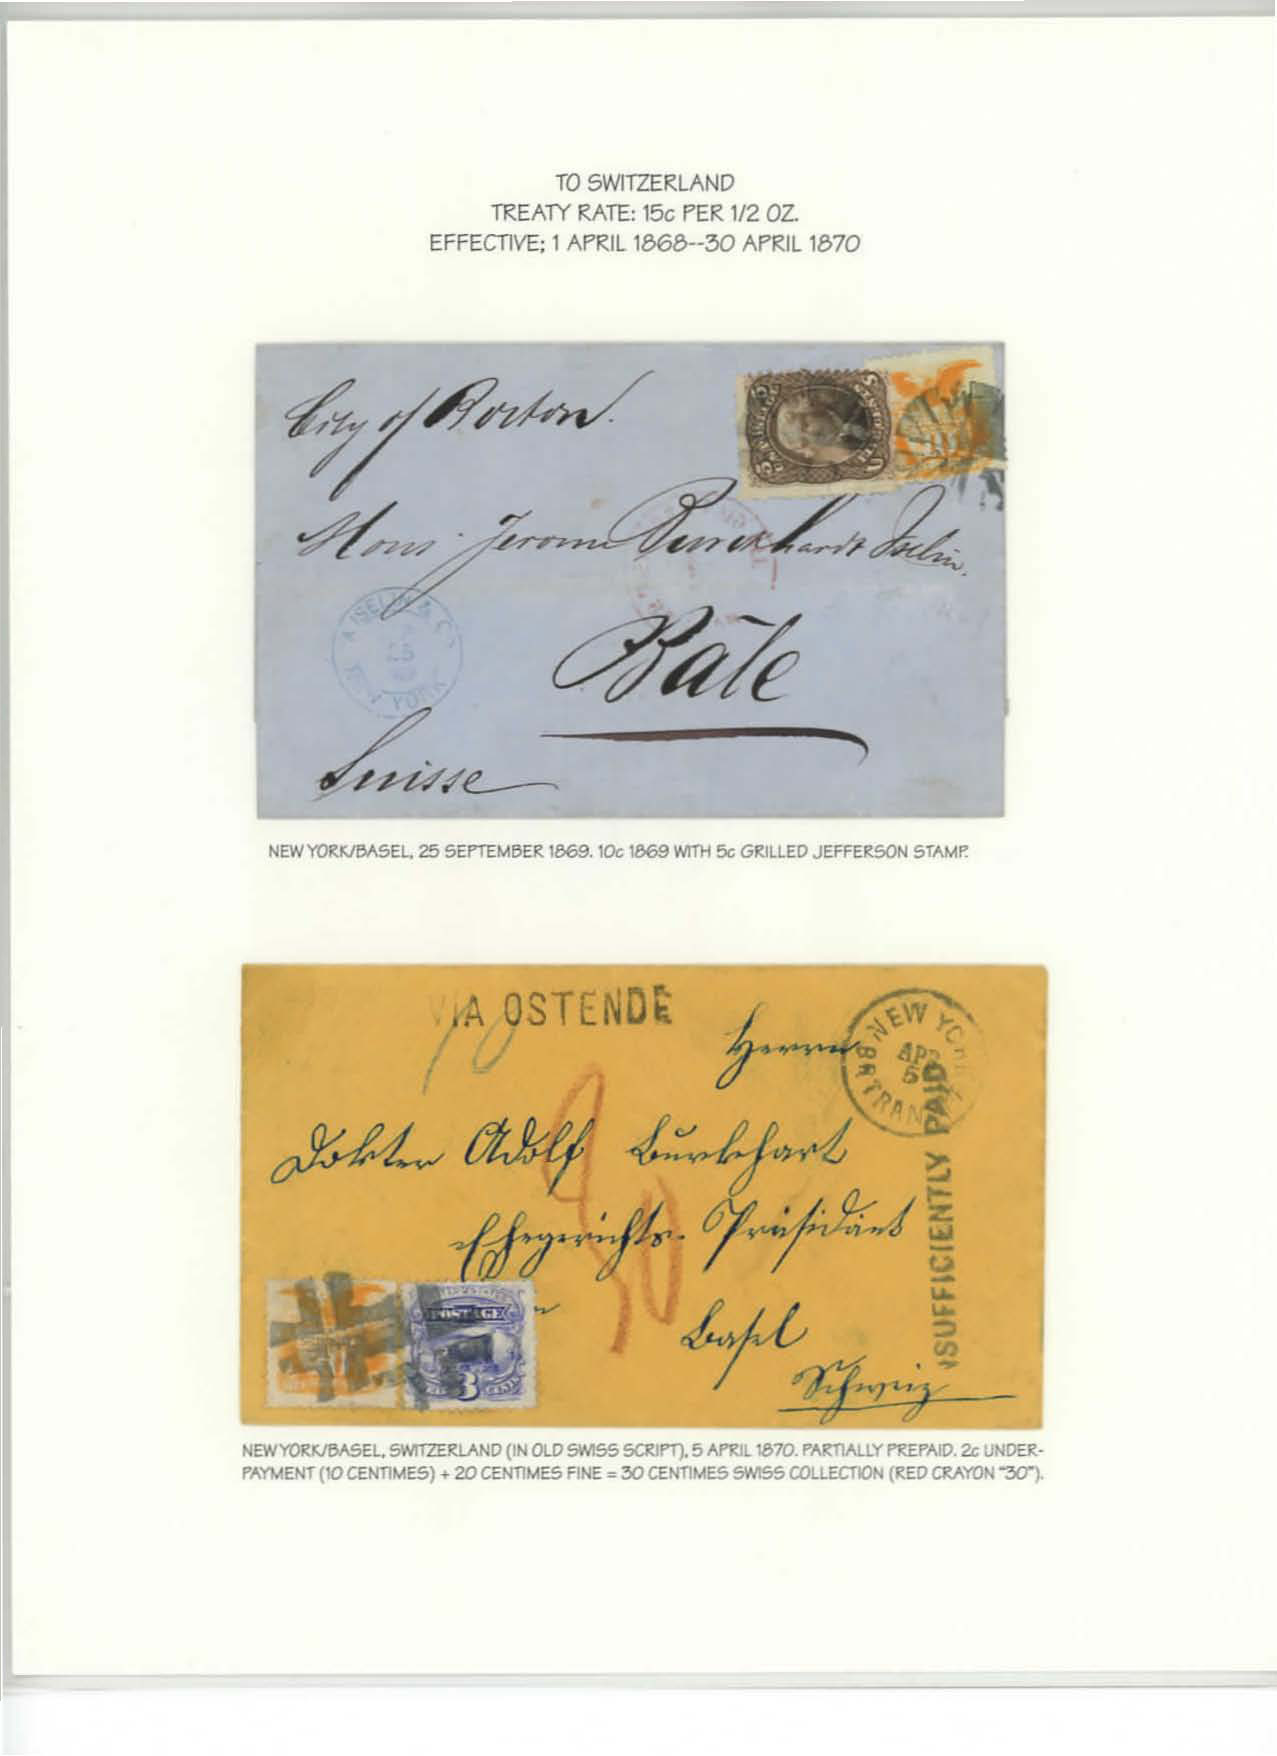 TO SWITZERLAND
TREATY RATE: 15c PER 1/2 OZ.
EFFECTIVE; 1 APRIL 1868--30 APRIL 1870
City of Boston.
Mons. Jerome Burckhardt Iselin.
Bâle
Suisse
A ISELIN & Co
NEW YORK
NEW YORK/BASEL, 25 SEPTEMBER 1869. 10c 1869 WITH 5c GRILLED JEFFERSON STAMP.
VIA OSTENDE
NEW YORK
APR
5
BR TRAN
INSUFFICIENTLY PAID
Herrn
Doktor Adolf Burkhart
Ehegerichts-Präsident
Basel
Schweiz
30
POSTAGE
3
NEW YORK/BASEL, SWITZERLAND (IN OLD SWISS SCRIPT), 5 APRIL 1870. PARTIALLY PREPAID. 2c UNDER-
PAYMENT (10 CENTIMES) + 20 CENTIMES FINE = 30 CENTIMES SWISS COLLECTION (RED CRAYON "30").